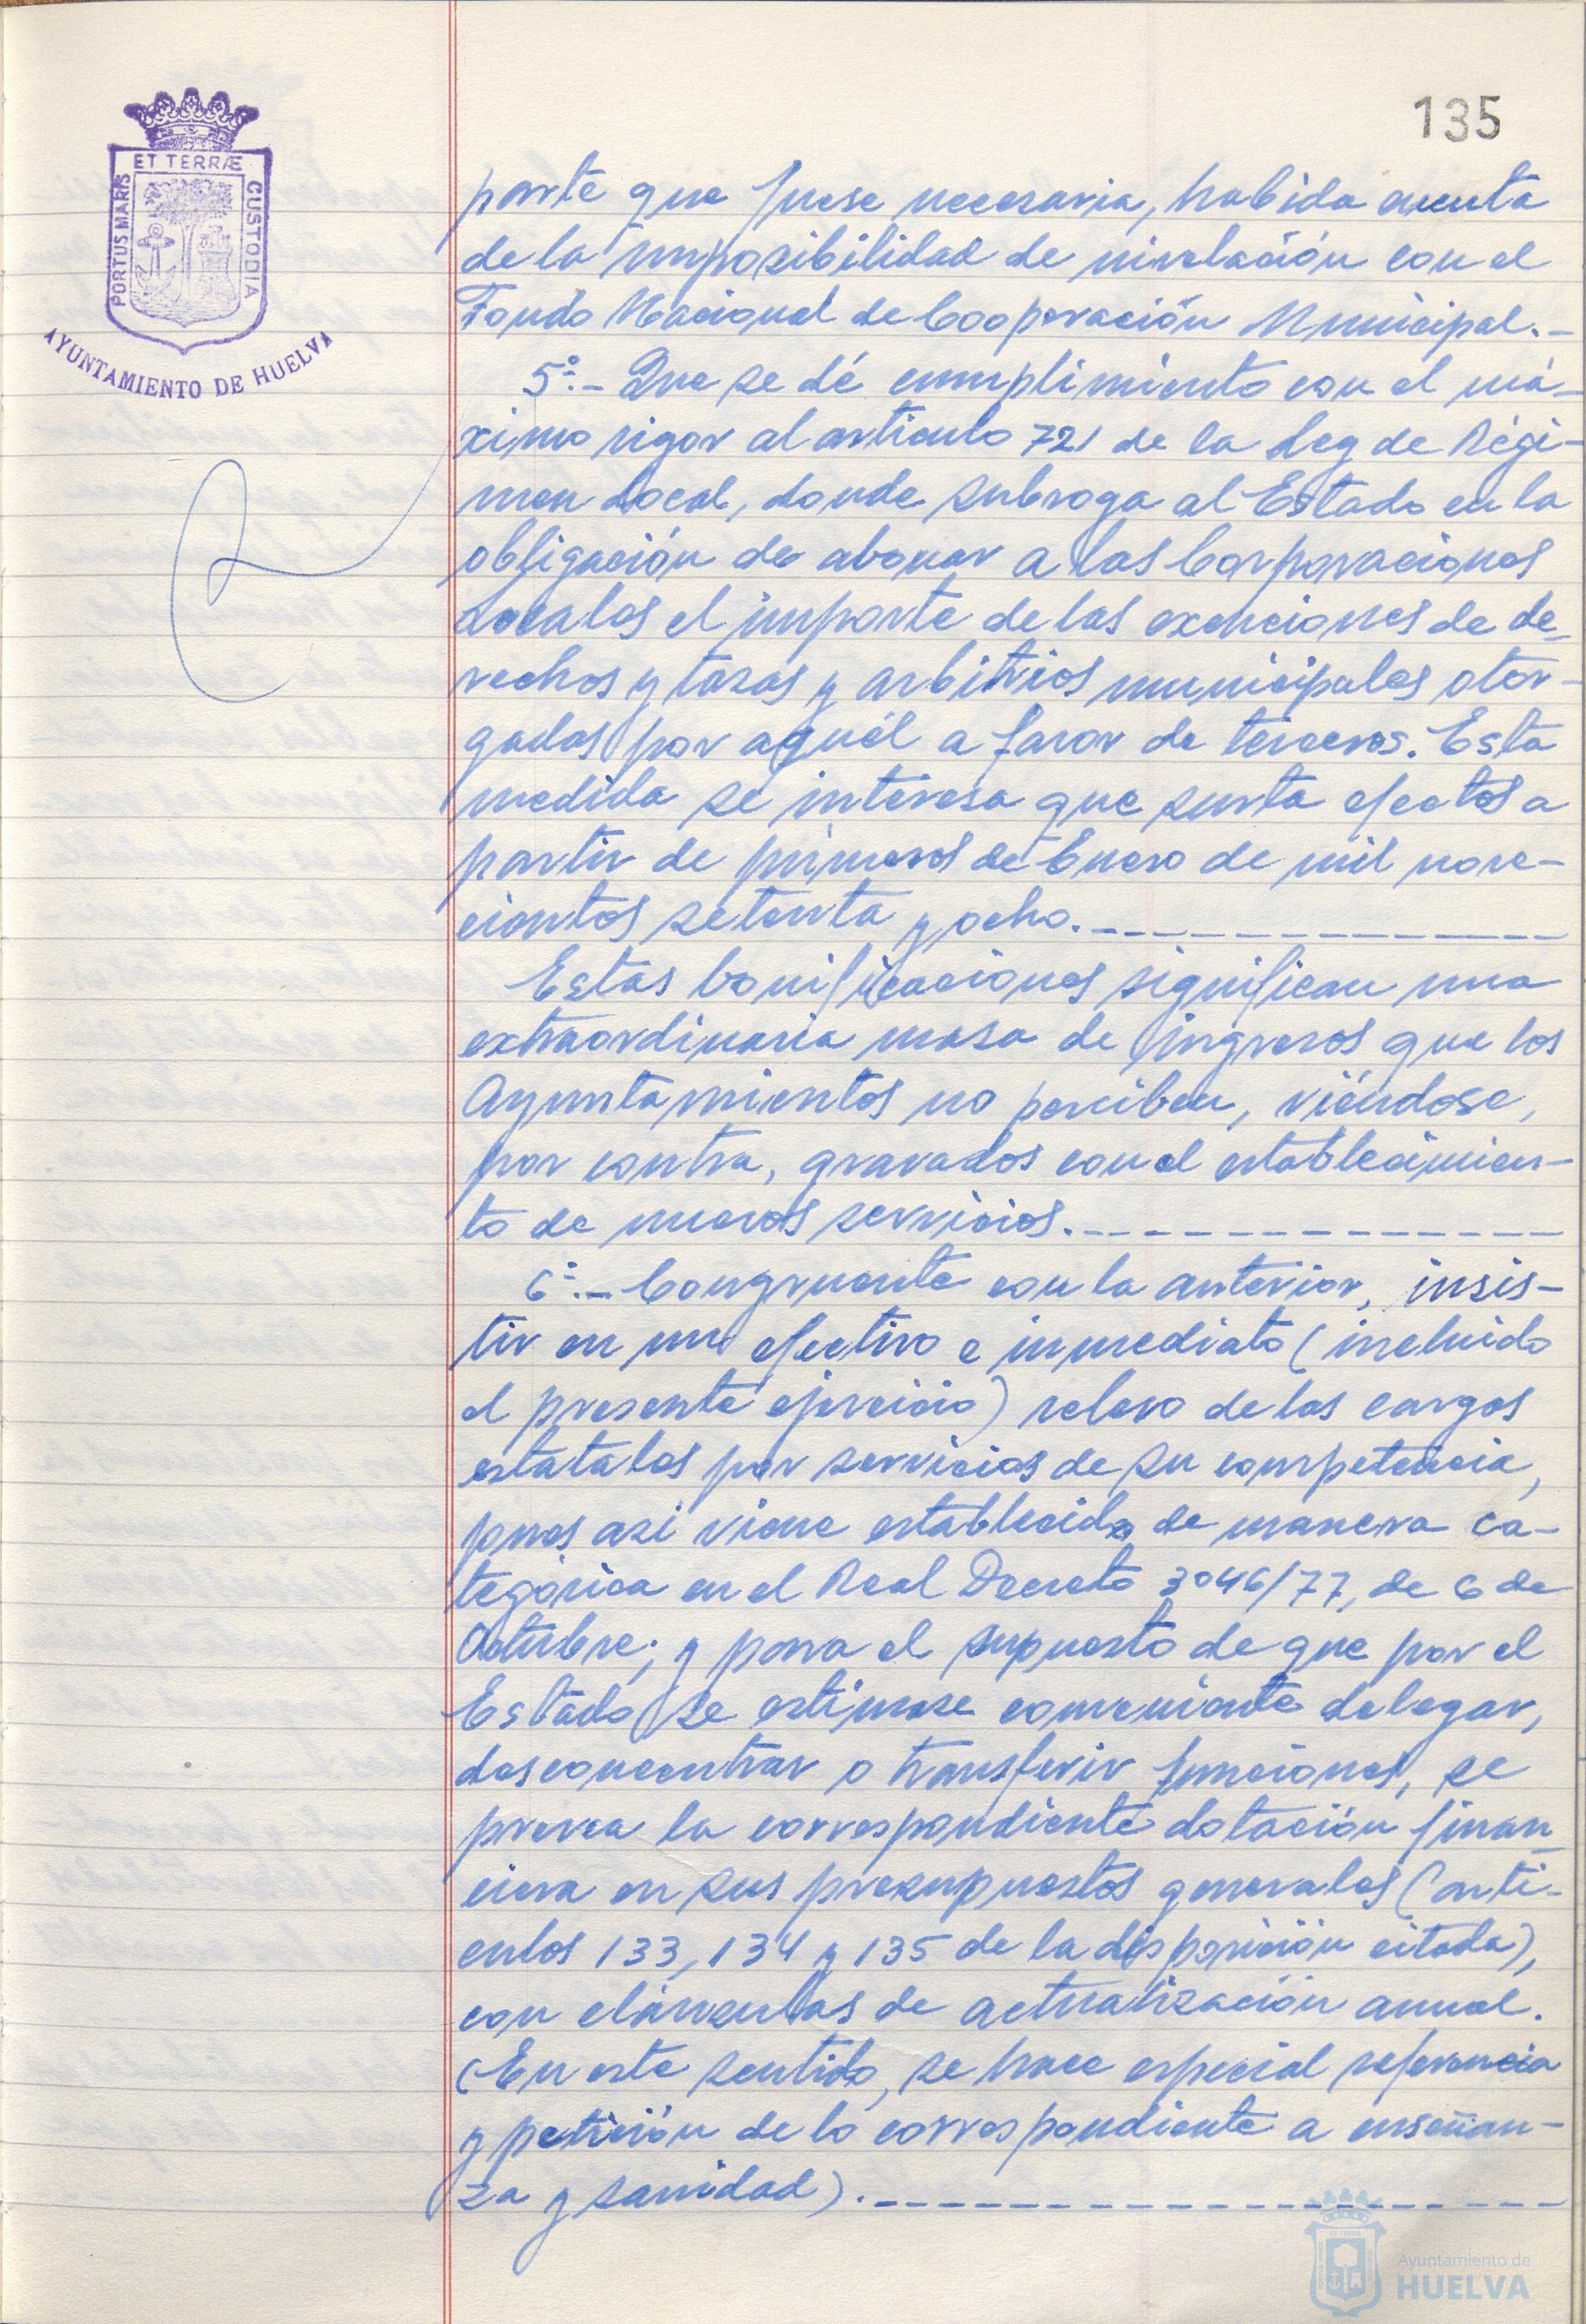 135
ET TERRÆ
PORTUS MARIS
CUSTODIA
AYUNTAMIENTO DE HUELVA
parte que fuese necesaria, habida cuenta
de la imposibilidad de nivelación con el
Fondo Nacional de Cooperación Municipal.-
5º.- Que se dé cumplimiento con el má-
ximo rigor al artículo 721 de la Ley de Régi-
men Local, donde subroga al Estado en la
obligación de abonar a las Corporaciones
Locales el importe de las exenciones de de-
rechos y tasas y arbitrios municipales otor-
gados por aquél a favor de terceros. Esta
medida se interesa que surta efectos a
partir de primeros de Enero de mil nove-
cientos setenta y ocho.
Estas bonificaciones significan una
extraordinaria masa de ingresos que los
Ayuntamientos no perciben, viéndose,
por contra, gravados con el establecimien-
to de nuevos servicios.
6º.- Congruente con la anterior, insis-
tir en un efectivo e inmediato (incluido
el presente ejercicio) relevo de las cargas
estatales por servicios de su competencia,
pues asi viene establecido de manera ca-
tegórica en el Real Decreto 3046/77, de 6 de
Octubre; y para el supuesto de que por el
Estado se estimase conveniente delegar,
desconcentrar o transferir funciones, se
prevea la correspondiente dotación finan-
ciera en sus presupuestos generales (artí-
culos 133, 134 y 135 de la disposición citada),
con cláusulas de actualización anual.
(En este sentido, se hace especial referencia
y petición de lo correspondiente a enseñan-
za y sanidad).
Ayuntamiento de
HUELVA